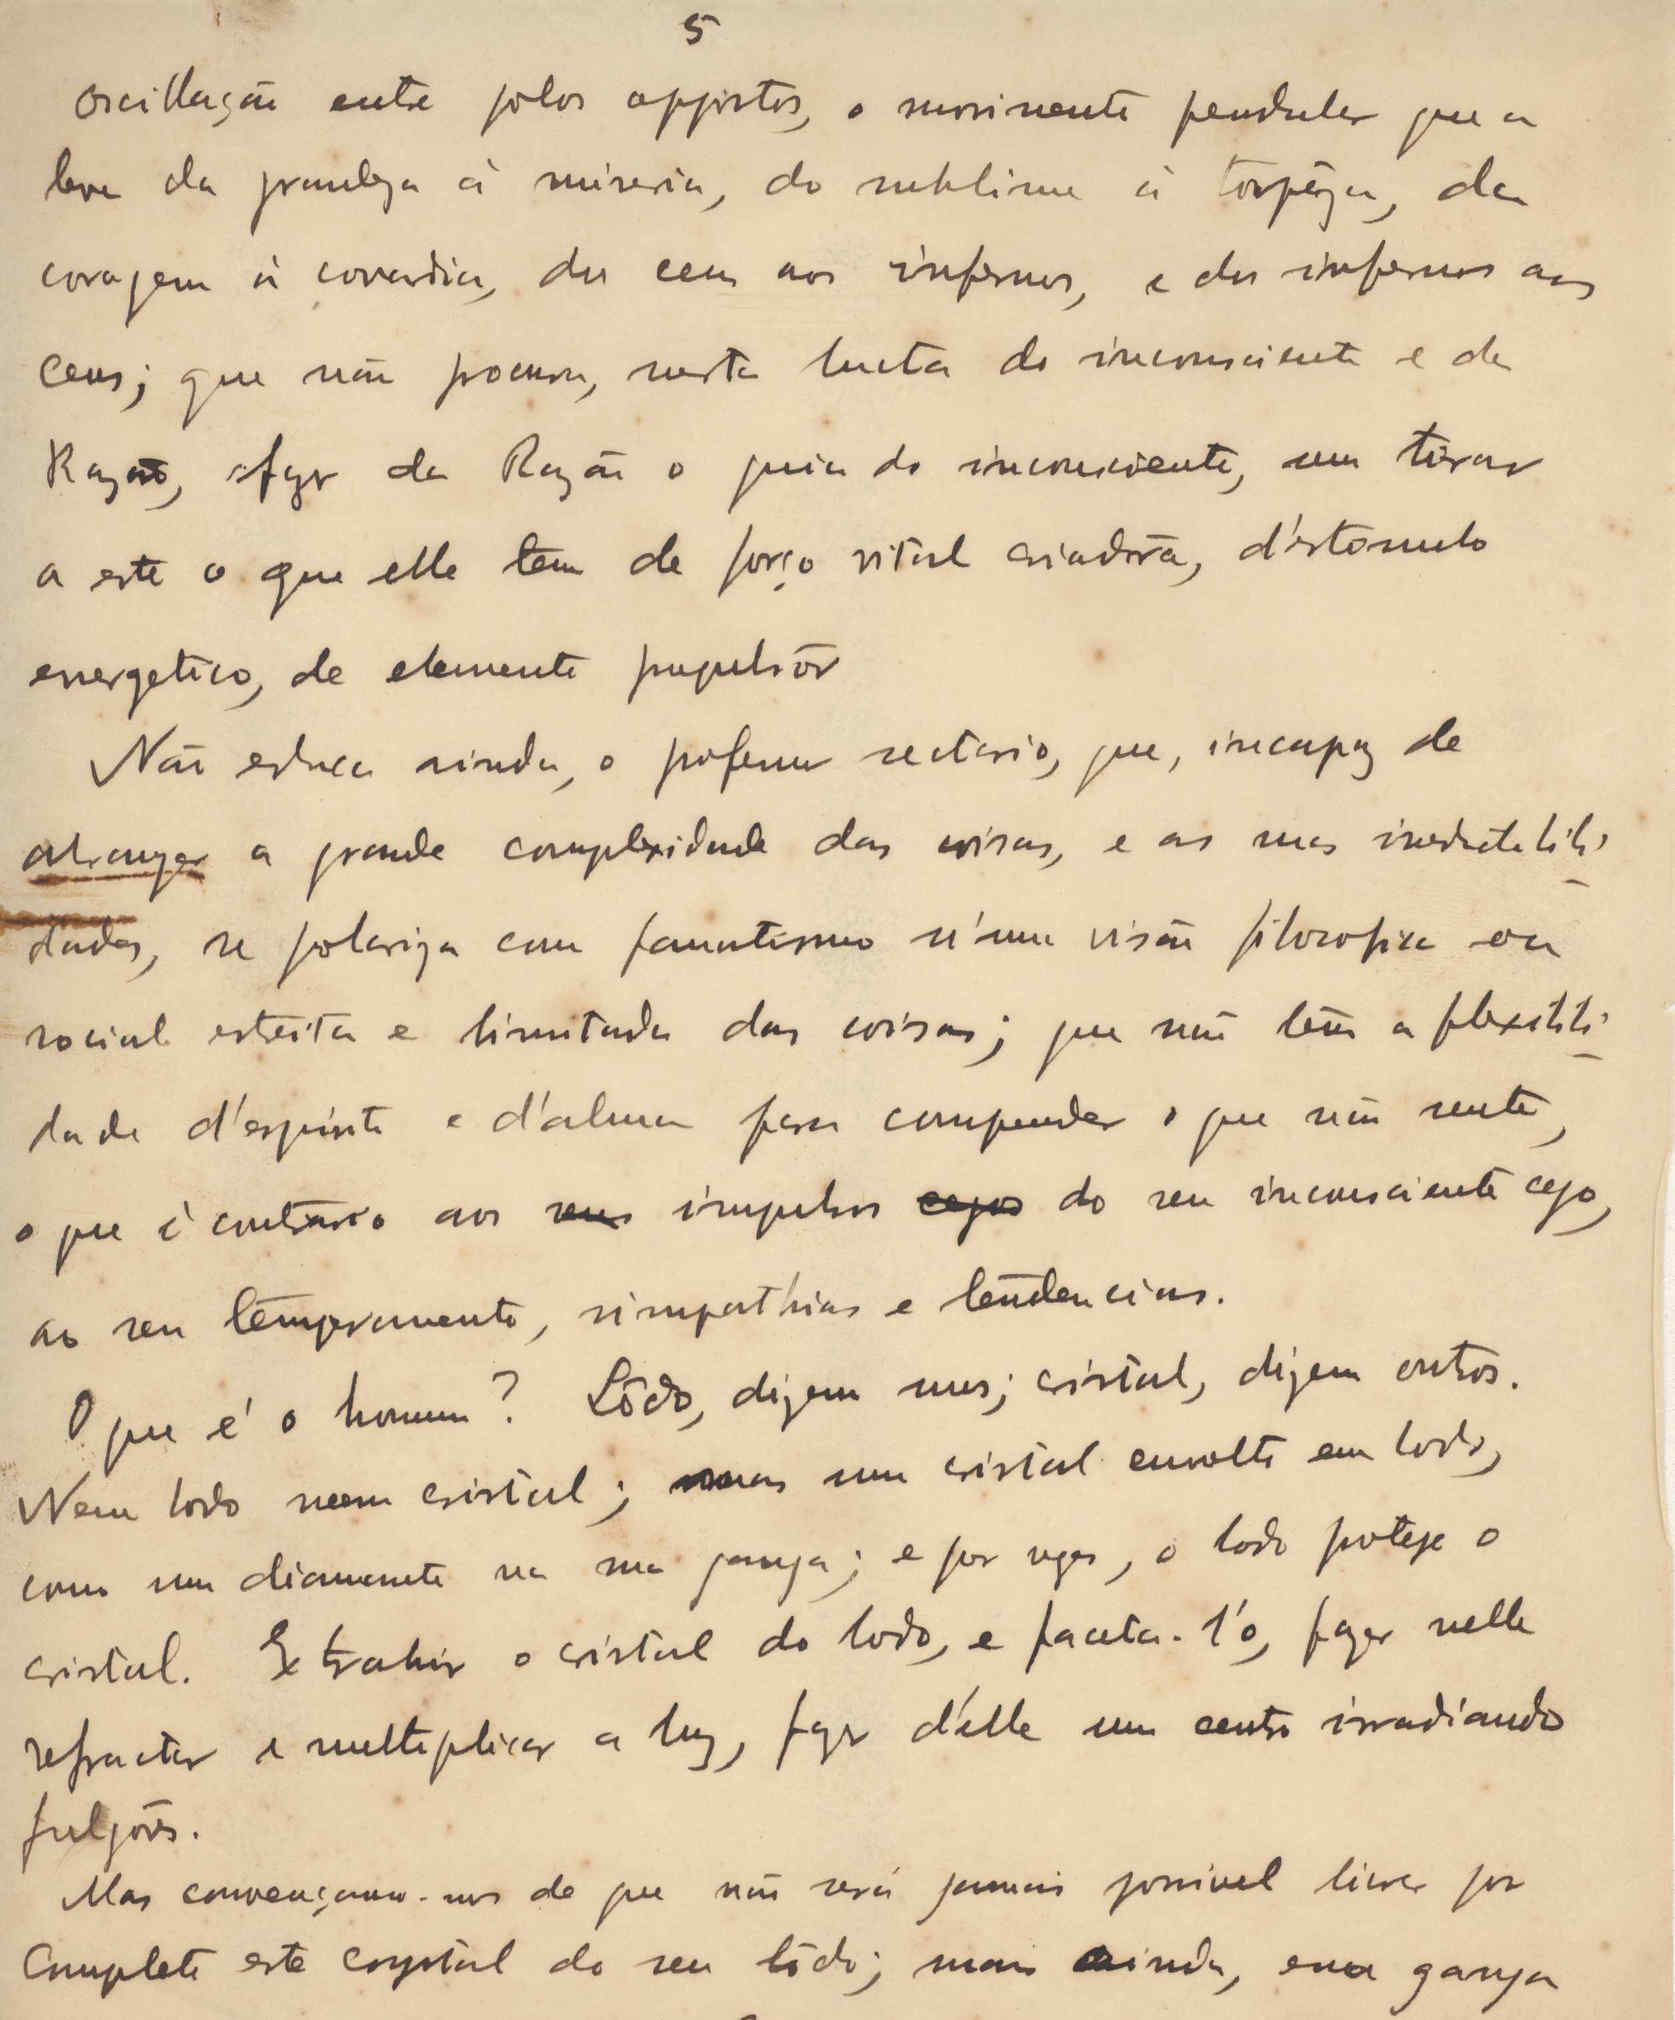 5
oscillação entre polos oppostos, o movimento pendular que a
leva da grandeza á miseria, do sublime á torpêza, da
coragem á covardia, dos ceus aos infernos, e dos infernos aos
ceus; que não procura, nesta lucta do inconsciente e da
Razão, fazer da Razão o guia do inconsciente, sem tirar
a este o que elle tem de força vital criadôra, d'estomulo
energetico, de elemento propulsôr
Não educa ainda, o professor sectario, que, incapaz de
abranger a grande complexidade das coisas, e as suas ineductabili-
dades, se polariza com fanatismo n'uma visão filosofica ou
social estreita e limitada das coisas; que não têm a flexibili-
dade d'espirito e d'alma para comprender o que não sente,
o que é contrario aos seus impulsos cegos do seu inconsciente cego,
ao seu temperamento, simpathias e tendencias.
O que é o homem? Lôdo, dizem uns; cristal, dizem outros.
Nem lodo nem cristal; mas um cristal envolto em lodo,
como um diamante na sua ganga; e por vezes, o lodo protege o
cristal. Extrahir o cristal do lodo, e faceta-l'o, fazer nelle
refractar e multiplicar a luz, fazer d'elle um centro irradiando
fulgôres.
Mas convençamo-nos de que não será jamais possivel livrar por
completo este crystal do seu lôdo; mais ainda, essa ganga